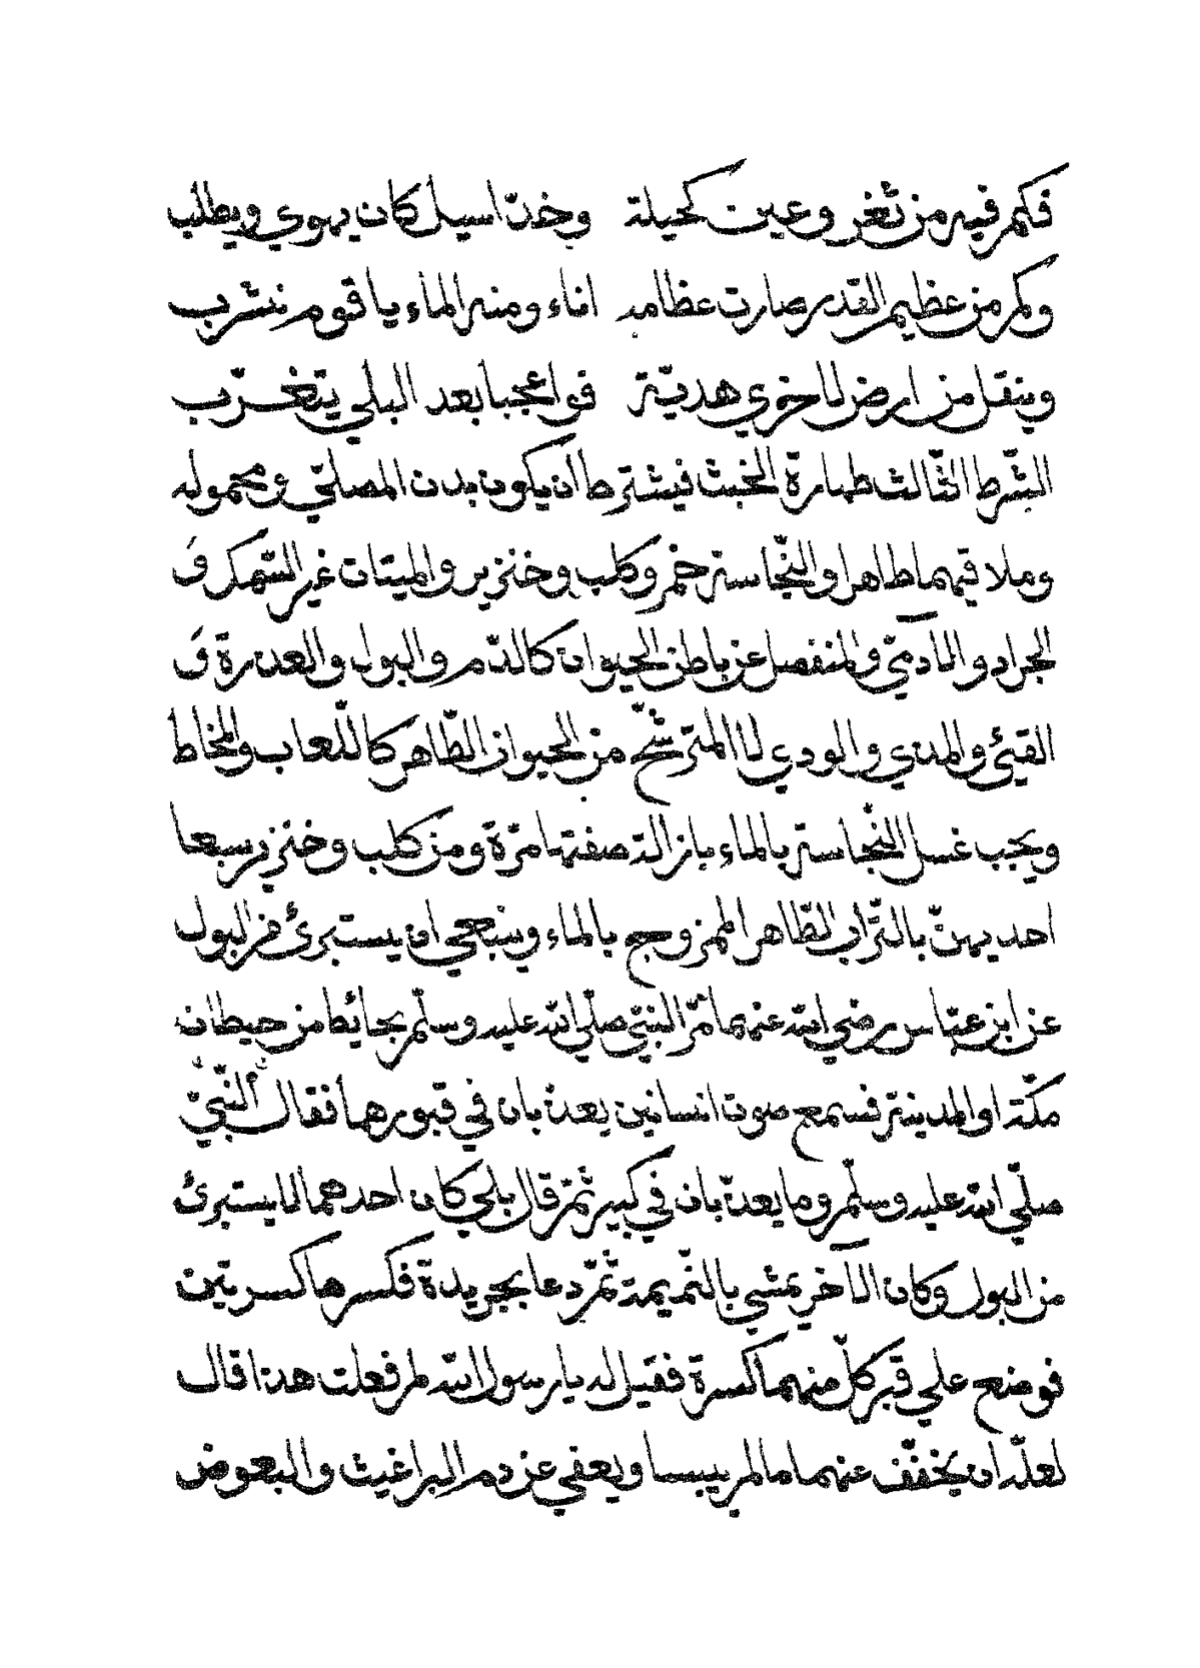 فكم فيه من ثغر وعين كحيلة وخدّ اسيل كان يهوي ويطلب
وكم من عظيم القدر صارت عظامه اناء ومنه الماء يا قوم نشرب
وينقل من ارض لاخري هديّة فواعجبا بعد البلي يتغرّب
الشّرط الثّالث طهارة الخبث فيشترط ان يكون بدن المصلّي ومحموله
وملاقيهما طاهرا والنّجاسة خمر وكلب وخنزير والميتات غير السّمك و
الجراد والآدميّ والمنفصل عن باطن الحيوان كالدّم والبول والعذرة و
القيئ والمذي والودي لا المترشّح من الحيوان الطّاهر كاللّعاب والمخاط
ويجب غسل النّجاسة بالماء بازالة صفتها مرّة ومن كلب وخنزير سبعا
احديهنّ بالتّراب الطّاهر الممزوج بالماء وينبغي ان يستبرئ من البول
عن ابن عبّاس رضي الله عنهما مرّ النبيّ صلّي الله عليه وسلّم بحائط من حيطان
مكّة او المدينة فسمع صوت انسانين يعذّبان في قبورهما فقال النّبيّ
صلّي الله عليه وسلّم وما يعذّبان في كبير ثمّ قال بلي كان احدهما لا يستبرئ
من البول وكان الآخر يمشي بالنّميمة ثمّ دعا بجريدة فكسرها كسرتين
فوضع علي قبر كلّ منهما كسرة فقيل له يا رسول الله لم فعلت هذا قال
لعلّه ان يخفّف عنهما ما لم ييبسا ويعفي عن دم البراغيث والبعوض